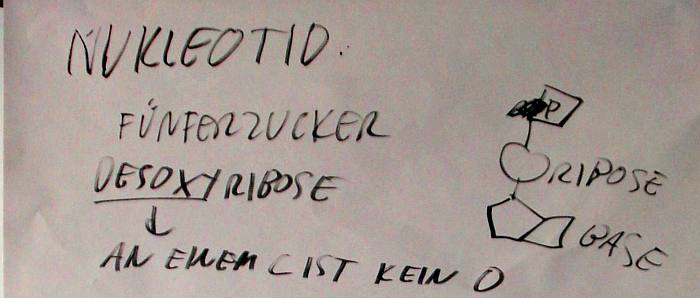 NUKLEOTID:
FÜNFERZUCKER
DESOXYRIBOSE
AN EINEM C IST KEIN O
P
RIBOSE
BASE